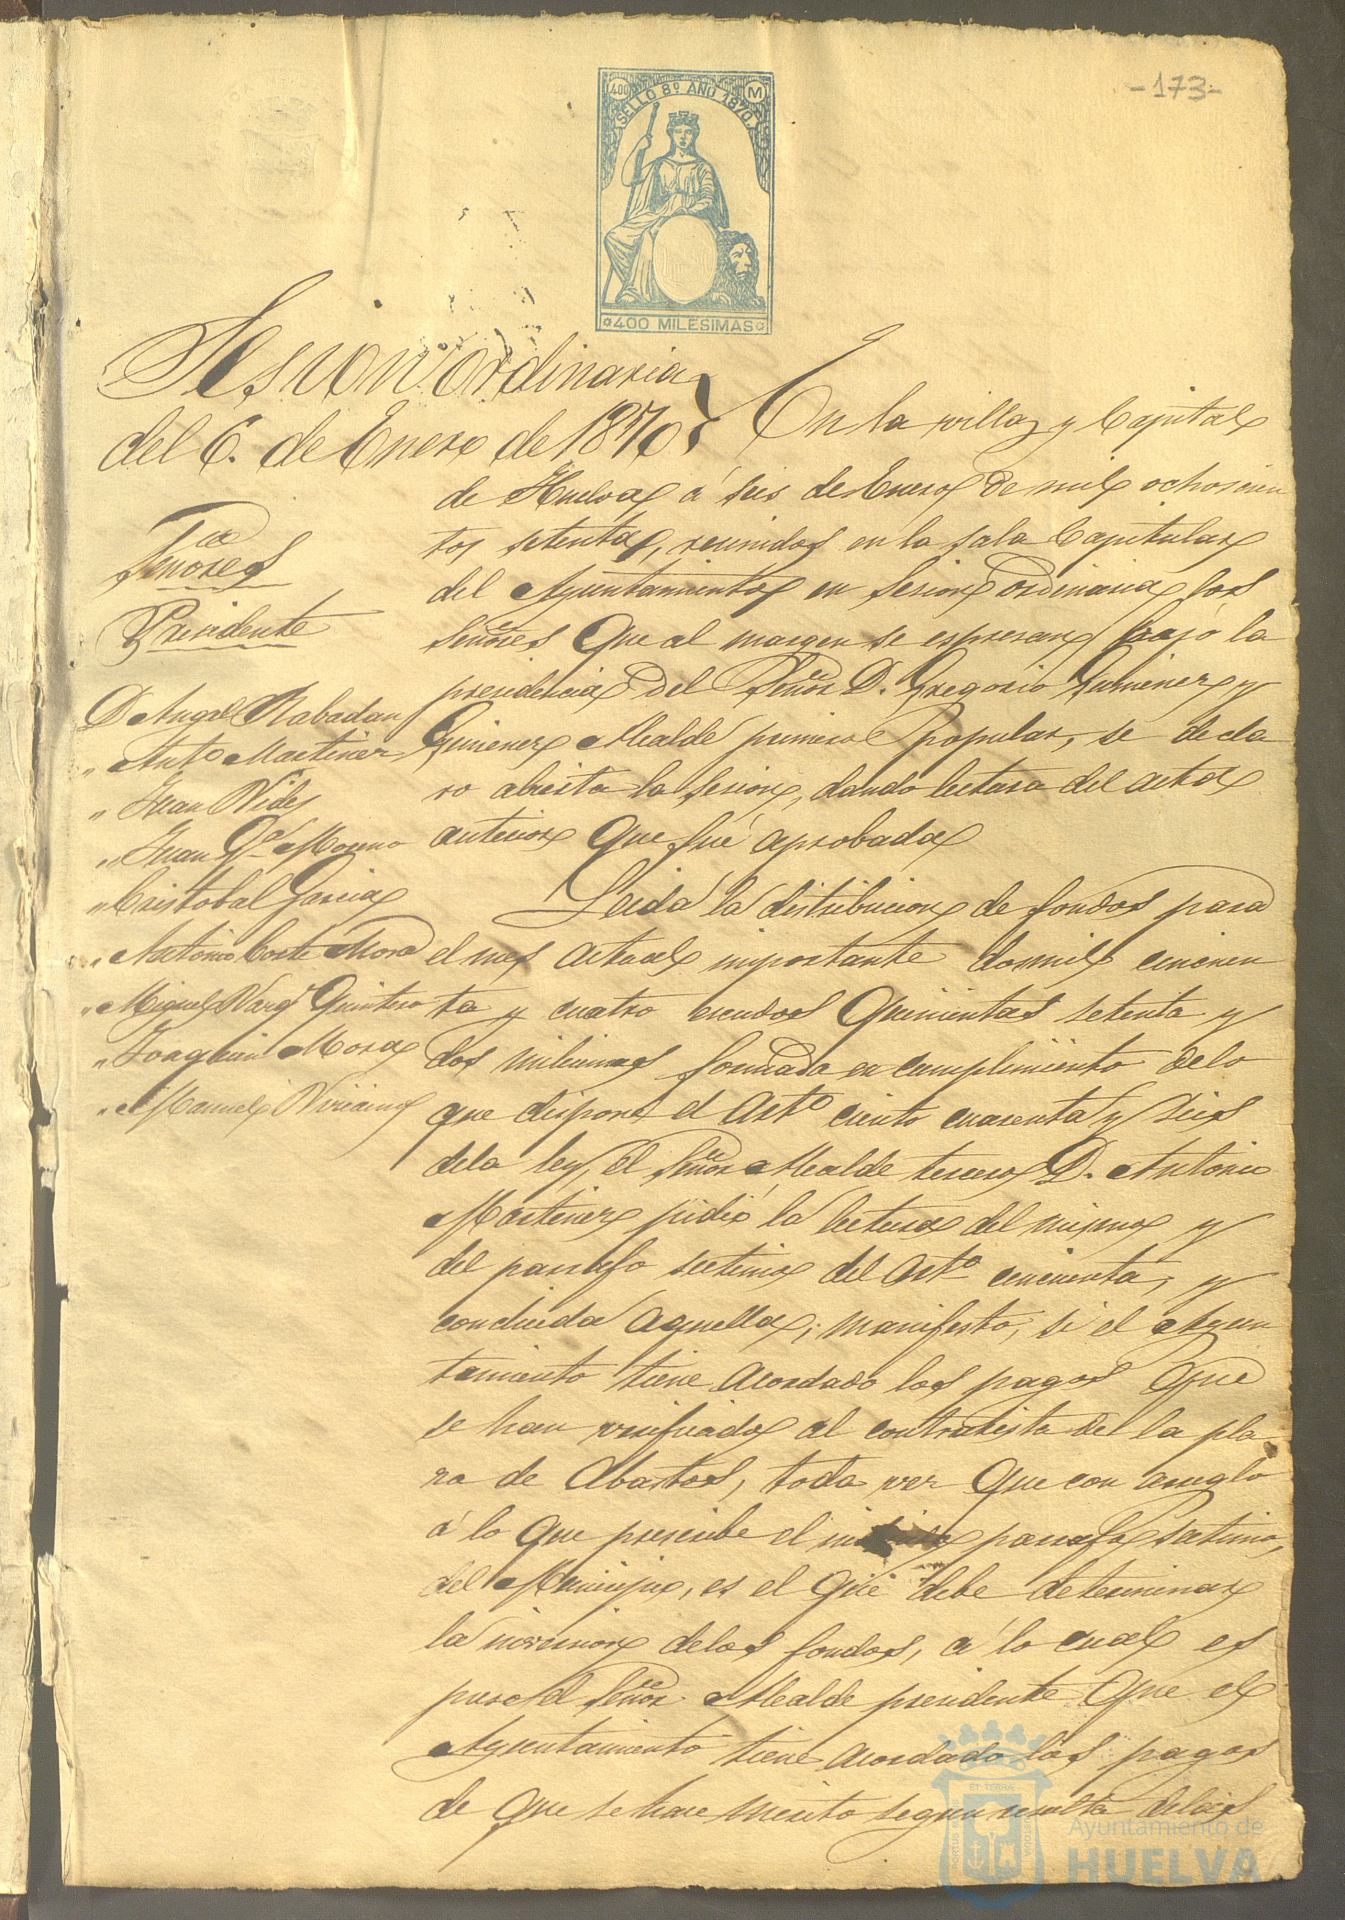 -173-
400 M
SELLO 8º AÑO 1870.
400 MILESIMAS
Sesion ordinaria
del 6. de Enero de 1870
Señores
Presidente
D. Angel Rabadan
" Antº Martinez
" Juan Vides
" Juan Gª Moreno
" Cristobal Garcia
" Antonio Corte Mora
" Miguel Vazqz Quintero
" Joaquin Mora
" Manuel
En la villa y Capital
de Huelva á seis de Enero de mil ochocien
tos setenta, reunidos en la sala Capitular
del Ayuntamiento en sesion ordinaria los
Señores que al margen se espresan bajo la
presidencia del Señor D. Gregorio Gimenez y
Gimenez Alcalde primero popular, se decla
ro abierta la sesion, dando lectura del acta
anterior que fué aprobada
Leida la distribucion de fondos para
el mes actual importante dosmil cincuen
ta y cuatro escudos quinientas setenta y
dos milesimas formada en cumplimiento delo
que dispone el Artº ciento cuarenta y seis
dela ley, el Señor Alcalde tercero D. Antonio
Martinez pidió la lectura del mismo y
del parrafo septimo del Artº cincuenta, y
concluida aquella, manifesto, si el Ayun
tamiento tiene acordado los pagos que
se han verificado al contratista del la pla
za de Abastos, toda vez que con arreglo
á lo que prescribe el parrafo septimo,
del Municipio, es el que debe determinar
la inversion delos fondos, á lo cual es
puso el Señor Alcalde presidente que el
Ayuntamiento tiene acordado los pagos
de que se hace merito segun resulta delas
Ayuntamiento de
HUELVA